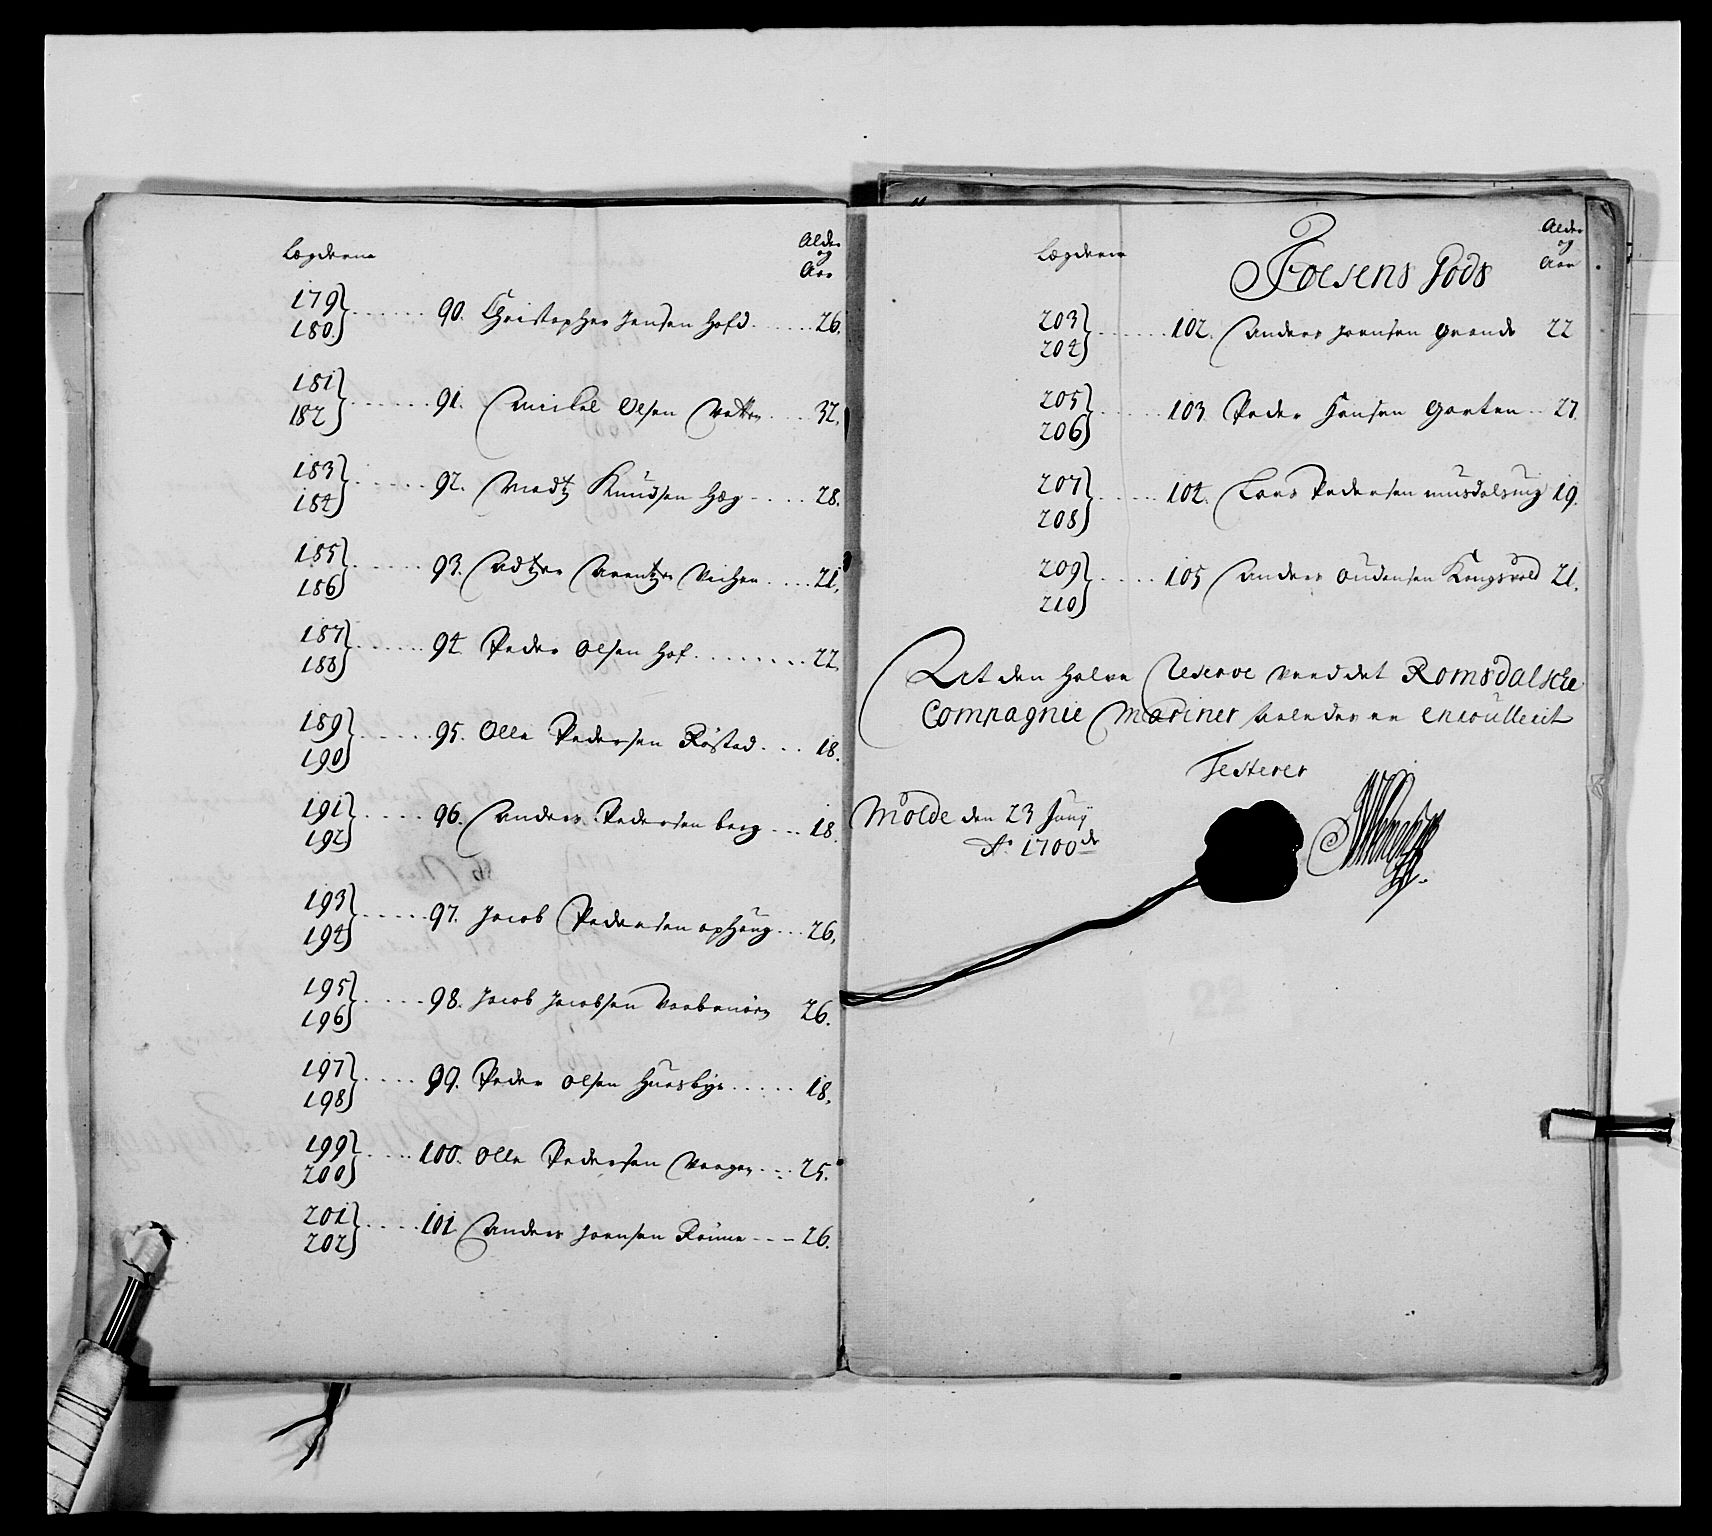 Lægderne
Alder
og
Aar
179
180 90. Christopher Jensen Hofd 26.
181
182 91. Mickel Olsen Vetten 32.
183
184 92. Madtz Knudsen Hæg 28.
185
186 93. Adtzer Arentzen 21.
187
188 94 Peder Olsen Hof 22.
189
190 95. Olle Pedersen Røstad 18.
191
192 96. Anders Pedersen berg 18
193
194 97. Jacob Pedersen ophaug 26.
195
196 98. Jacob Jacobsen 26.
197
198 99. Peder Olsen Huusbye 18.
199
200 100. Olle Pedersen 25.
201
202 101 Anders Joensen Rønne 26.
Lægderne
Foesens Gods
Alder
og
Aar
203
204 102. Anders Joensen Grande 22
205
206 103 Peder Hansen Garten 27.
207
208 104. Lars Pedersen musdalsvig 19.
209
210 105 Anders Oudensen Kongsvold 21.
At den halve Reserve ved det Romsdalsche
Compagnie Mariner saaledes er enroullerit
Testerer
Molde den 23 Junij
Ao 1700de